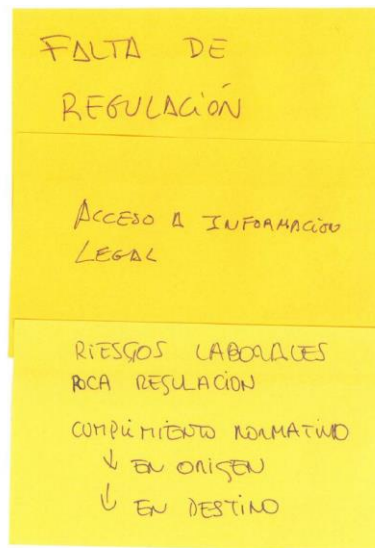 FALTA DE
REGULACIÓN
ACCESO A INFORMACIÓN
LEGAL
RIESGOS LABORALES
POCA REGULACION
CUMPLIMIENTO NORMATIVO
↓ EN ORIGEN
↓ EN DESTINO